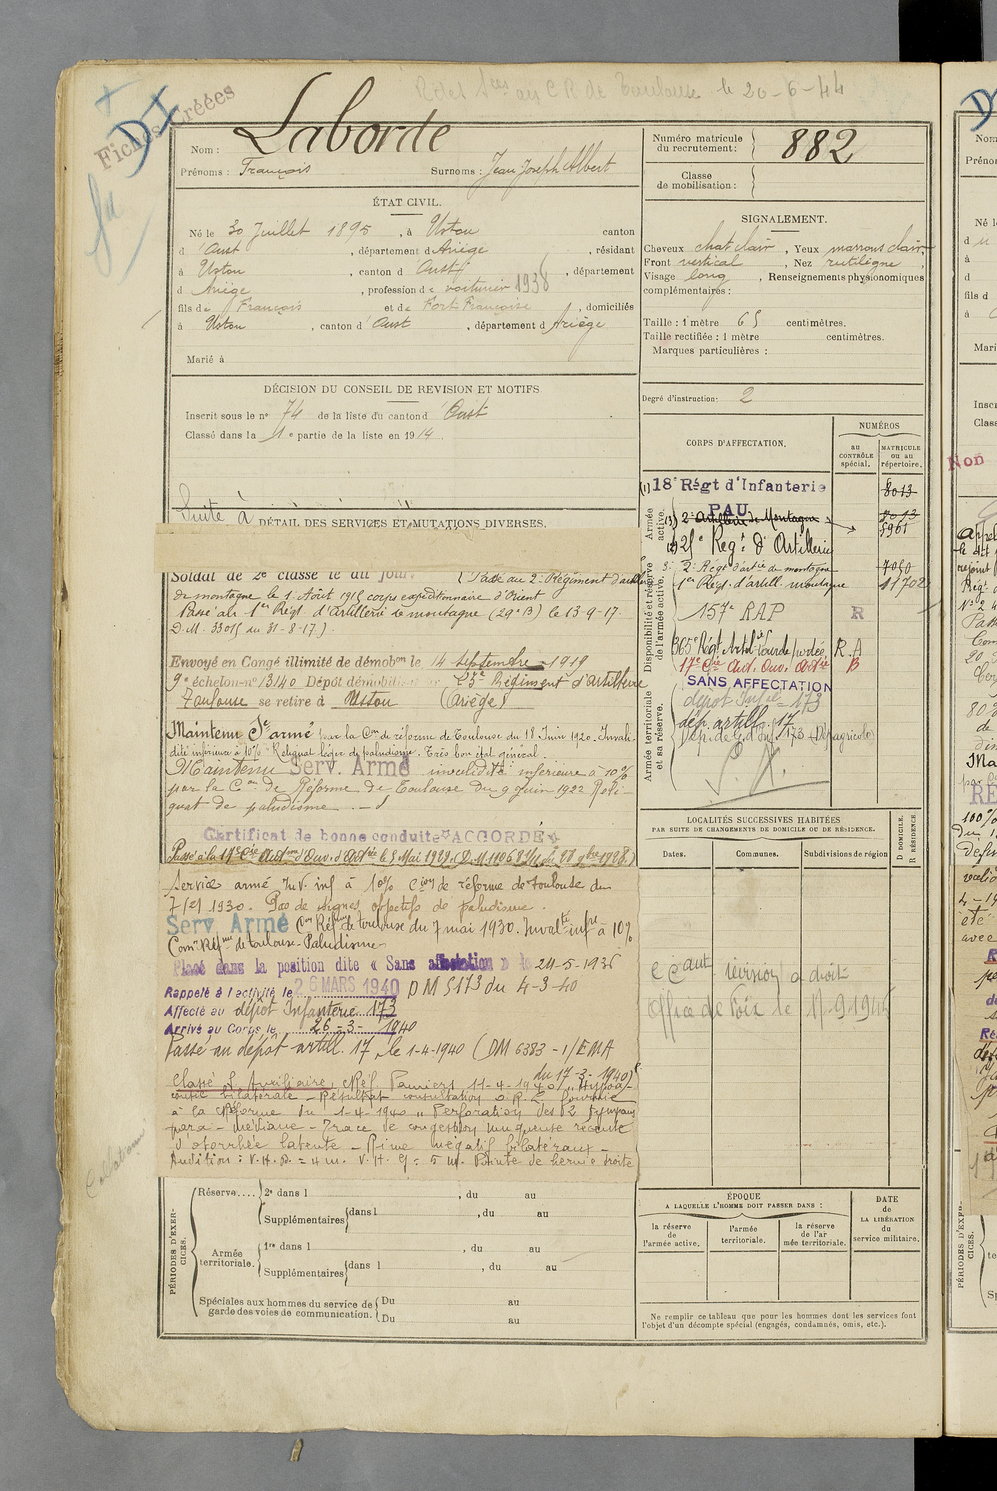 Rdet 1ces au C R de Toulouse le 20-6-44
Fiches Créées
DI
Nom : Laborde
Prénoms : François Surnoms : Jean Joseph Albert
Numéro matricule du recrutement : 882
Classe de mobilisation :
ÉTAT CIVIL.
Né le 30 Juillet 1895, à Ustou canton
d'Oust, département d Ariège, résidant
à Ustou, canton d Oust, département
d Ariège, profession de voiturier 1938
fils de François et de Fort Françoise, domiciliés
à Ustou, canton d'Oust, département d Ariège
Marié à
SIGNALEMENT.
Cheveux chat clair, Yeux marrons clair
Front vertical, Nez rectiligne,
Visage long, Renseignements physionomiques
complémentaires :
Taille : 1 mètre 65 centimètres.
Taille rectifiée : 1 mètre centimètres.
Marques particulières :
Degré d'instruction : 2
DÉCISION DU CONSEIL DE REVISION ET MOTIFS
Inscrit sous le n° 74 de la liste du canton d Oust
Classé dans la 1e partie de la liste en 1914
Suite à
DÉTAIL DES SERVICES ET MUTATIONS DIVERSES.
Soldat de 2e classe le dit jour. (Passé au 2e Régiment d'artillerie
de montagne le 1 Août 1915 corps expéditionnaire d'Orient
Passé au 1er Régt d'artillerie de montagne (29e B) le 13-9-17.
D.M. 33015 du 31-8-17.)
Envoyé en Congé illimité de démobon le 14 septembre 1919
9e échelon n° 13140 Dépôt démobilisateur 23e Régiment d'artillerie
Toulouse se retire à Ustou (Ariège)
Maintenu Sce armé par la Con de réforme de Toulouse du 18 Juin 1920. Invali-
dité inférieure à 10% Reliquat léger de paludisme. Très bon état général.
Maintenu Serv. Armé invalidité inférieure à 10%
par la Con de Réforme de Toulouse du 9 Juin 1922 Reli-
quat de paludisme.
Certificat de bonne conduite ACCORDÉ
Passé à la 17e Cie Autme d'Ouv. d'Artie le 5 Mai 1929
Service armé Inv. inf à 10% Cion de réforme de Toulouse du
7/21 1930. Pas de signes objectifs de paludisme.
Serv Armé Con Réfme de Toulouse du 7 mai 1930. Invalté infre à 10%
Com. Réfme de Toulouse-Paludisme
Placé dans la position dite « Sans affectation » le 24-5-1936
Rappelé à l'activité le 26 MARS 1940 DM 5173 du 4-3-40
Affecté au dépôt Infanterie 173
Arrivé au Corps le 26-3-1940
Passé au dépôt artill. 17 le 1-4-1940 (DM 6383-1/EMA
du 17-3-1940)
Classé S. Auxiliaire, CRéf Pamiers 11-4-1940 "Hypoa-
cousie bilatérale - Résultat consultation O.R.L. fournie
à la Réforme du 1-4-1940 " Perforation des 2 tympans
para-médiane - Trace de congestion muqueuse récente
d'otorrhée latente - Rinne négatif bilatéraux -
Audition : V.H.D. = 4m. V.H.G = 5 m. Pointe de hernie droite
CORPS D'AFFECTATION.
NUMÉROS
au CONTRÔLE spécial.
MATRICULE ou au répertoire.
Armée active.
(1) 18e Régt d'Infanterie 8013
PAU
(3) 2e Artillerie de Montagne 8013
5961
(2) 21e Regt d'Artillerie
Disponibilité et réserve de l'armée active.
2e Régt d'artie de montagne 7050
1er Régt d'artill. montagne 11702
157e RAP R
365e Régt Artie Lourde portée R.A
17e Cie Aut. Ouv. Artie B
SANS AFFECTATION
Armée territoriale et sa réserve.
dépôt Infie 173
dép. artill. 17
LOCALITÉS SUCCESSIVES HABITÉES
PAR SUITE DE CHANGEMENTS DE DOMICILE OU DE RÉSIDENCE.
Dates. Communes. Subdivisions de région D DOMICILE. R RÉSIDENCE.
Office de Foix le 17-9-1945
Collation
PÉRIODES D'EXERCICES.
Réserve.... 2e dans l , du au
Supplémentaires dans l , du au
Armée territoriale. 1re dans l , du au
Supplémentaires dans l , du au
Spéciales aux hommes du service de Du au
garde des voies de communication. Du au
ÉPOQUE
A LAQUELLE L'HOMME DOIT PASSER DANS :
la réserve de l'armée active.
l'armée territoriale.
la réserve de l'armée territoriale.
DATE de LA LIBÉRATION du service militaire.
Ne remplir ce tableau que pour les hommes dont les services font
l'objet d'un décompte spécial (engagés, condamnés, omis, etc.).